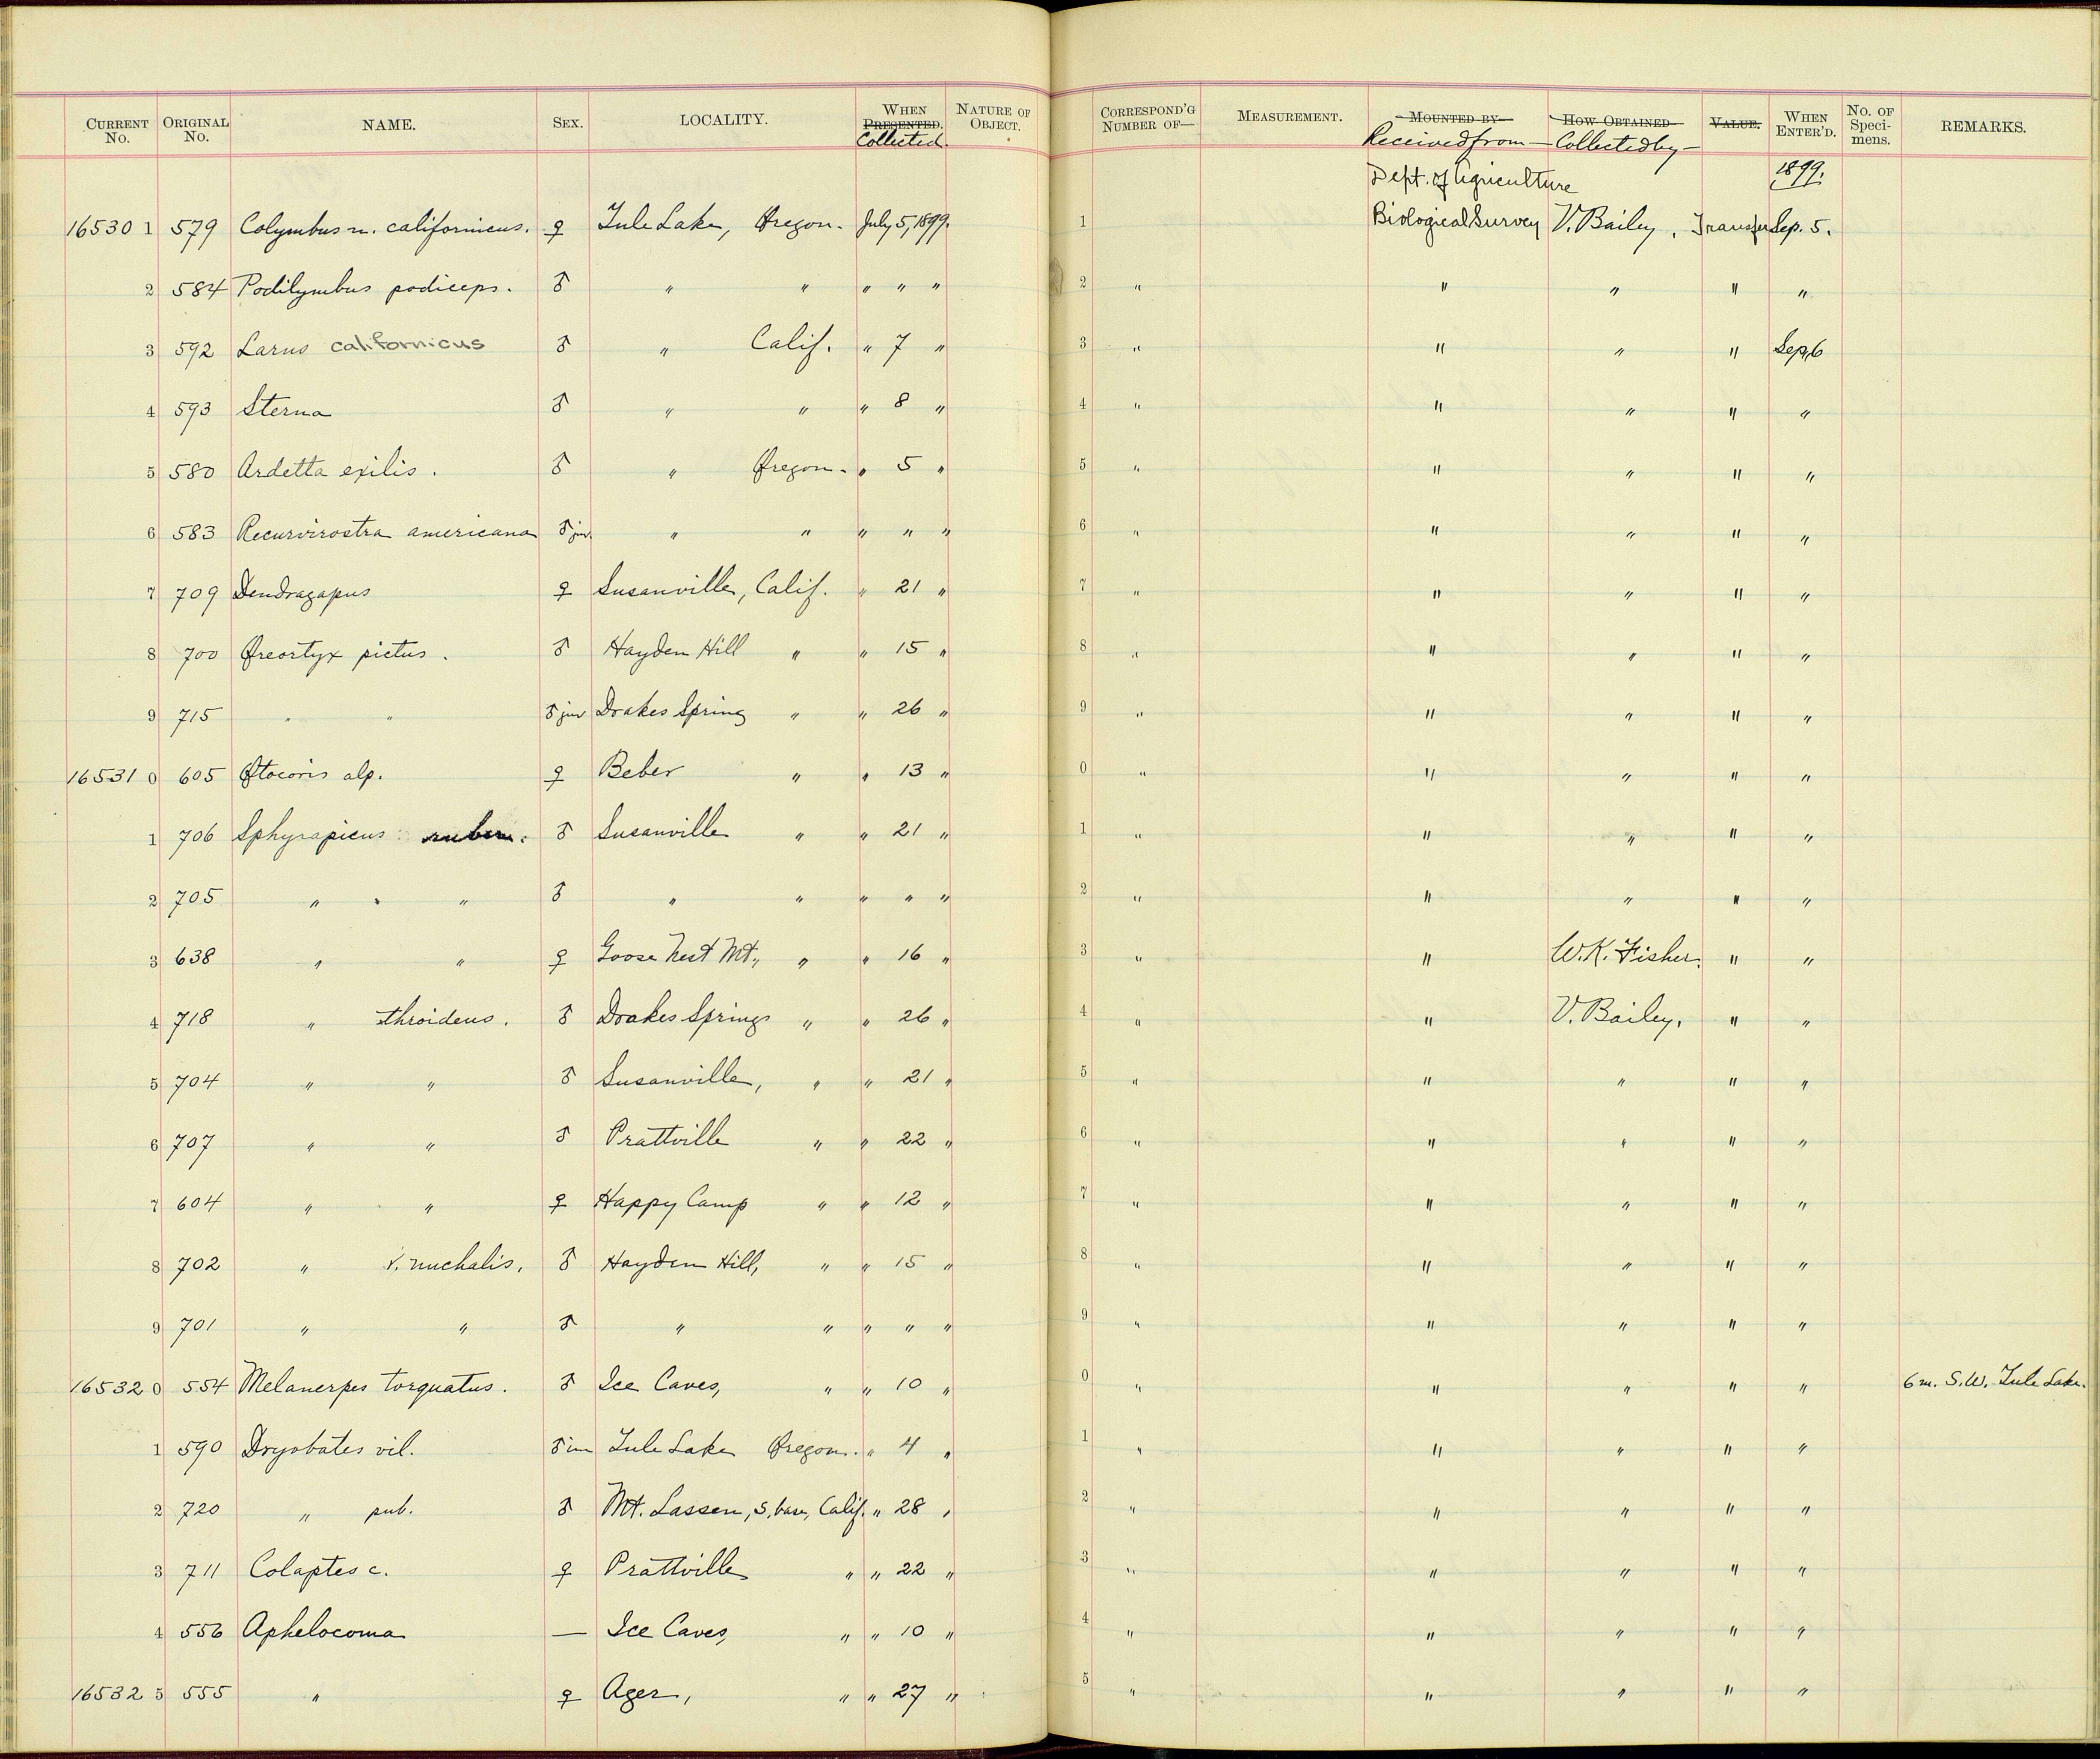 CURRENT No. ORIGINAL No. NAME. SEX. LOCALITY. WHEN PRESENTED. Collected. NATURE OF OBJECT. CORRESPOND'G NUMBER OF— MEASUREMENT. MOUNTED BY Received from — HOW OBTAINED Collected by — VALUE. WHEN ENTER'D. No. OF Speci-mens. REMARKS.
Dept. of Agriculture 1899.
16530 1 579 Colymbus n. californicus. ♀ Tule Lake, Oregon. July 5, 1899. 1 Biological Survey V. Bailey, Transfer Sep. 5.
2 584 Podilymbus podiceps. ♂ " " " " " 2 " " " " "
3 592 Larus californicus ♂ " Calif. " 7 " 3 " " " " Sep. 6
4 593 Sterna ♂ " " " 8 " 4 " " " " "
5 580 Ardetta exilis. ♂ " Oregon. " 5 " 5 " " " " "
6 583 Recurvirostra americana ♂ juv. " " " " " 6 " " " " "
7 709 Dendragapus ♀ Susanville, Calif. " 21 " 7 " " " " "
8 700 Oreortyx pictus. ♂ Hayden Hill " " 15 " 8 " " " " "
9 715 " " ♂ juv Drakes Spring " " 26 " 9 " " " " "
16531 0 605 Otocoris alp. ♀ Beber " " 13 " 0 " " " " "
1 706 Sphyrapicus ruber. ♂ Susanville " " 21 " 1 " " " " "
2 705 " " " ♂ " " " " " 2 " " " " "
3 638 " " ♀ Goose Nest Mt., " " 16 " 3 " " W.K. Fisher. " "
4 718 " throideus. ♂ Drakes Springs " " 26 " 4 " " V. Bailey, " "
5 704 " " ♂ Susanville, " " 21 " 5 " " " " "
6 707 " " ♂ Prattville " " 22 " 6 " " " " "
7 604 " " ♀ Happy Camp " " 12 " 7 " " " " "
8 702 " v. nuchalis. ♂ Hayden Hill, " " 15 " 8 " " " " "
9 701 " " ♂ " " " " " 9 " " " " "
16532 0 554 Melanerpes torquatus. ♂ Ice Caves, " " 10 " 0 " " " " " 6 m. S.W. Tule Lake.
1 590 Dryobates vil. ♂ im Tule Lake Oregon. " 4 " 1 " " " " "
2 720 " pub. ♂ Mt. Lassen, S. base, Calif. " 28 " 2 " " " " "
3 711 Colaptes c. ♀ Prattville " " 22 " 3 " " " " "
4 556 Aphelocoma — Ice Caves, " " 10 " 4 " " " " "
16532 5 555 " ♀ Ager, " " 27 " 5 " " " " "